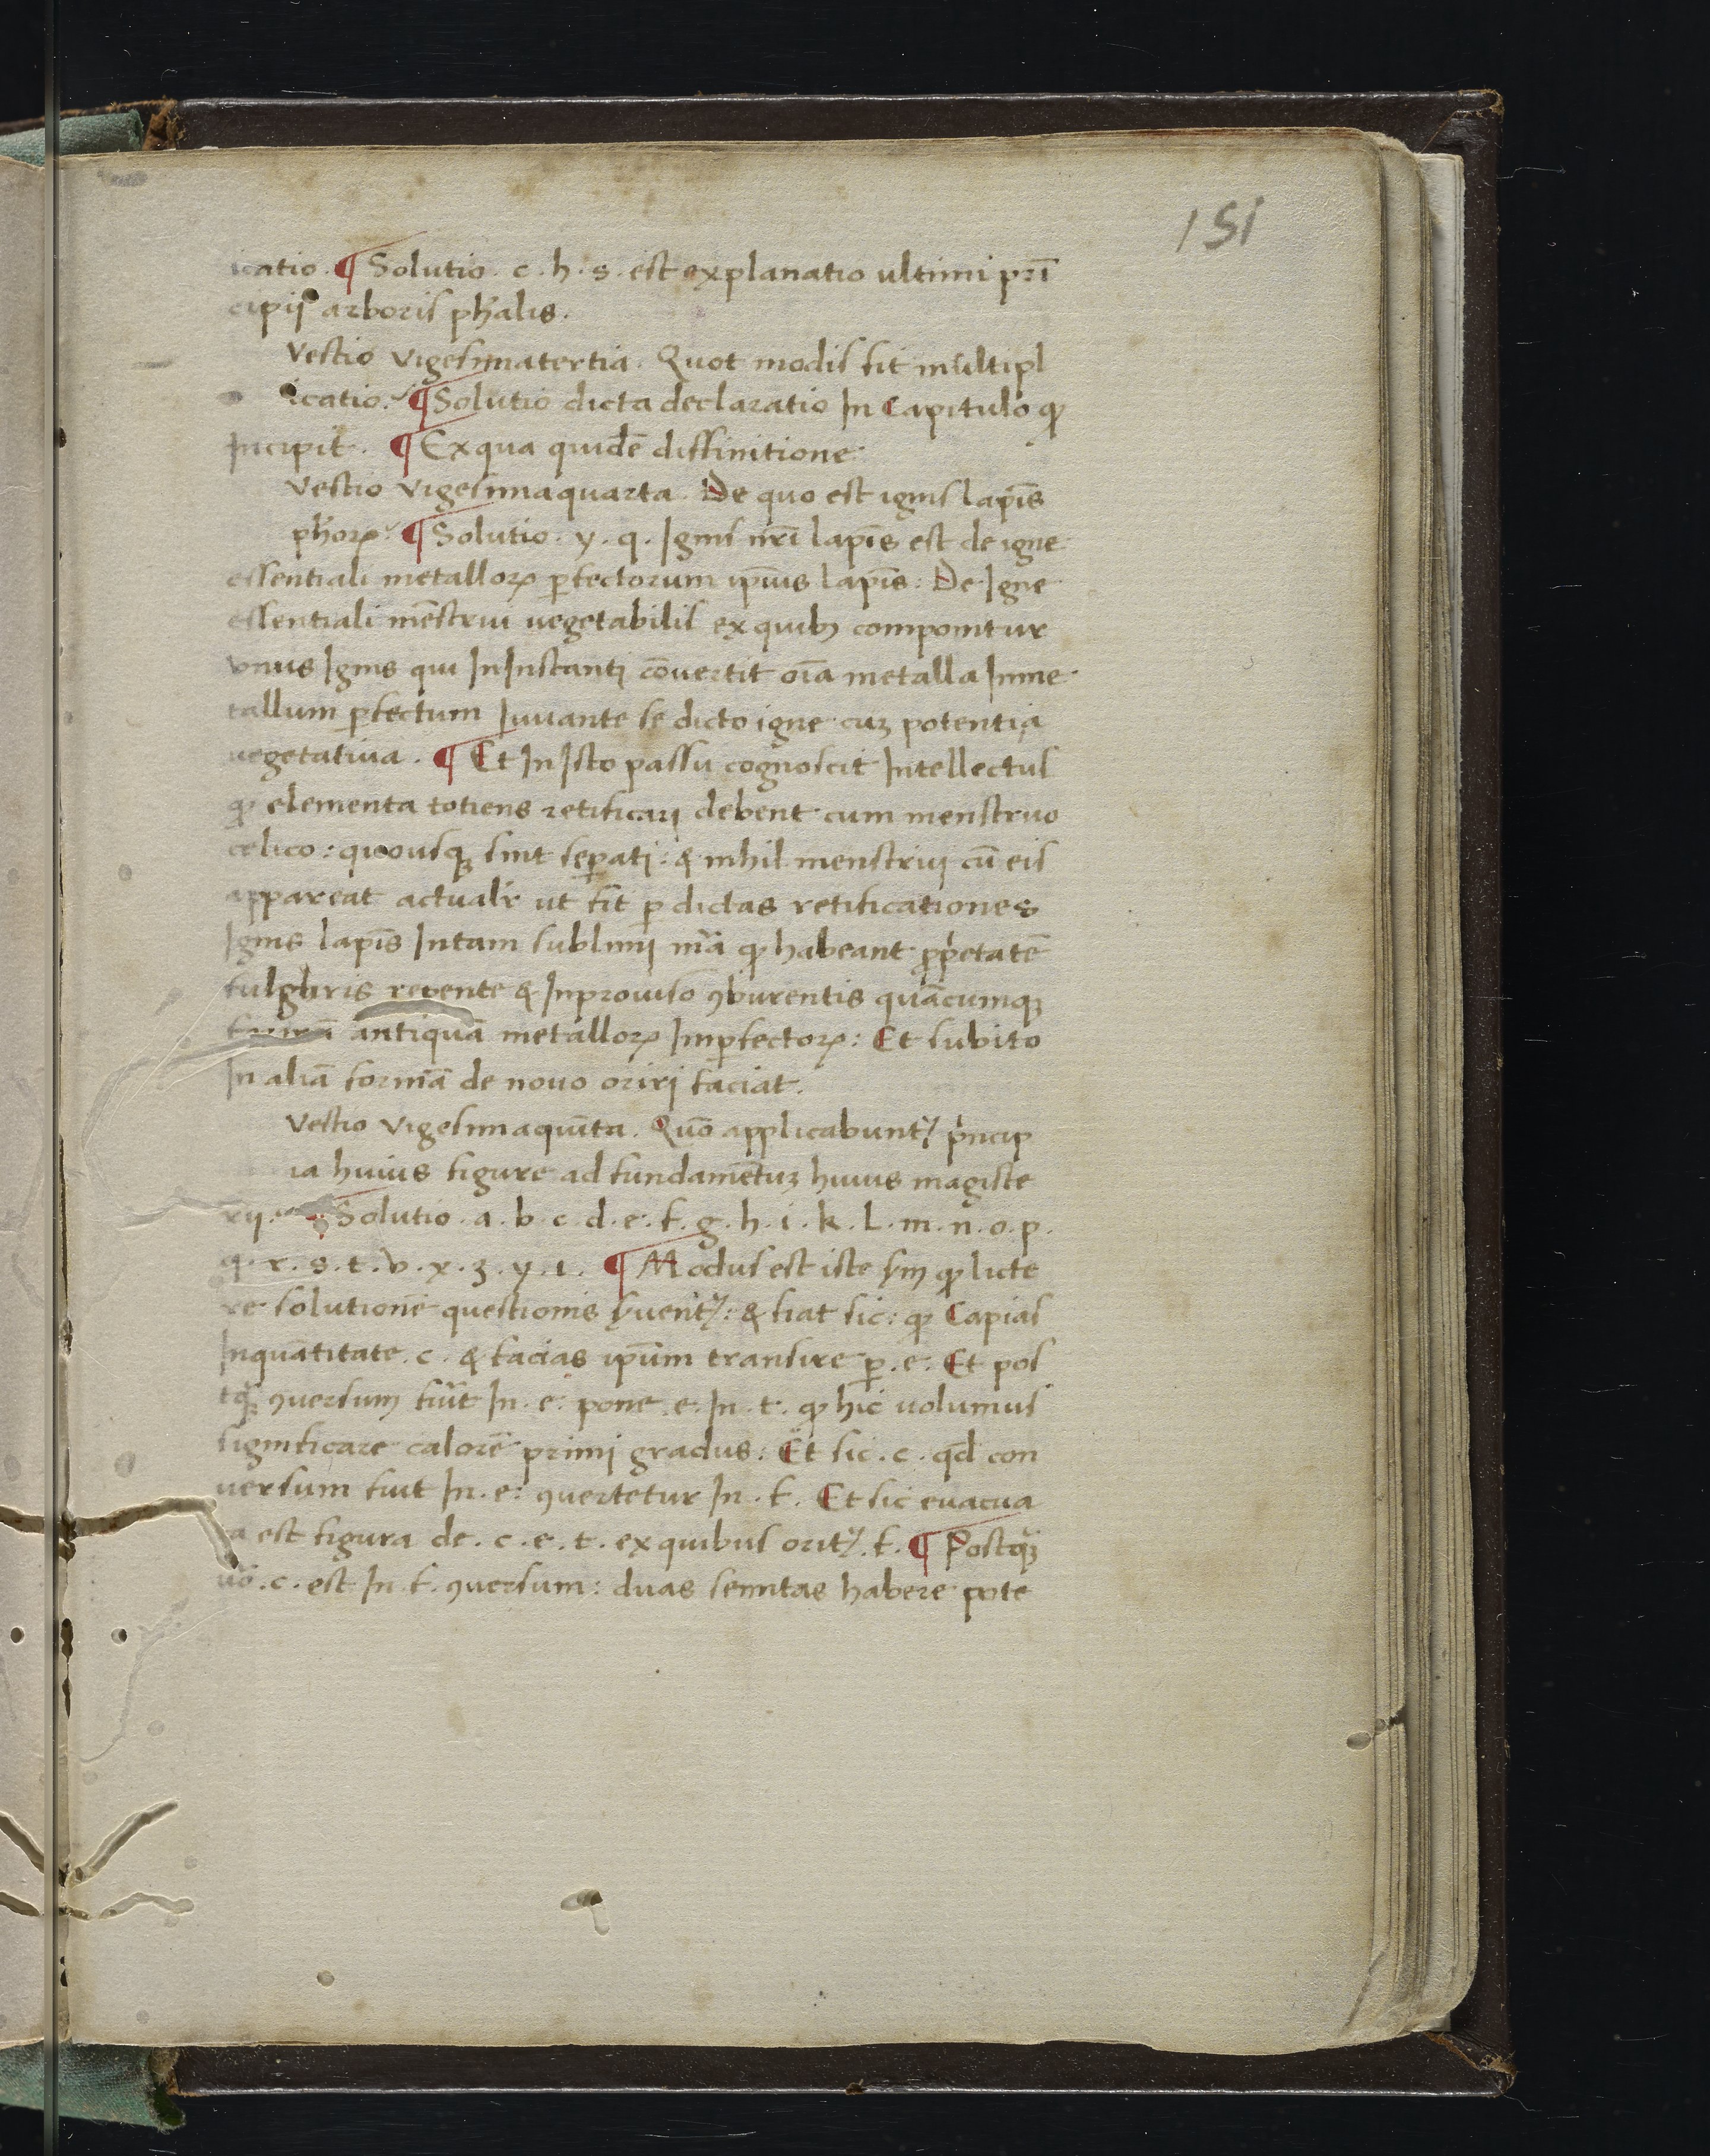 151
icatio. ¶ Solutio. c. h. s. est explanatio ultimi pri̅
cipij arboris ph̅alis.
Vestio vigesimatertia. Quot modis fit multipl
icatio. ¶ Solutio dicta declaratio In Capitulo ꝙ
Incipit. ¶ Ex qua quide̅ diffinitione
Vestio vigesimaquarta. De quo est ignis lapi̅s
ph̅oꝝ. ¶ Solutio. y. q. Ignis nr̅i lapi̅s est de igne
essentiali metalloꝝ ꝑfectorum ip̅ius lapi̅s: De Igne
essentiali me̅strui uegetabilis ex quibꝫ componitur
vnus Ignis qui InInstanti co̅uertit oi̅a metalla Inme
tallum ꝑfectum Iuuante se dicto igne cuꝫ potentia
uegetatiua. ¶ Et In Isto passu cognoscit Intellectus
ꝙ elementa totiens retificari debent cum menstruo
celico: quousqꝫ sint seꝑati: & nihil menstrui cu̅ eis
appareat actualr̅ ut sit ꝑ dictas retificationes
Ignis lapi̅s Intam sublimi ma̅ ꝙ habeant ꝓpetate̅
fulguris repente & Inprouiso ꝯburentis qua̅cumqꝫ
forma̅ antiqua̅ metalloꝝ Imꝑfectoꝝ: Et subito
In alia̅ forma̅ de nouo oriri faciat.
Vestio vigesimaqui̅ta. Quo̅ applicabunt᷑ pͥncip
ia huius figure ad fundame̅tuꝫ huius magiste
rij. ¶ Solutio. a. b. c. d. e. f. g. h. i. k. l. m. n. o. p.
q. r. s. t. v. x. z. y. 1. ¶ Modus est iste ꝙ licte
re solutione̅ questionis & fiat sic: ꝙ Capias
Inqua̅titate. c. & facias ip̅um transire ꝑ. e. Et pos
tqꝫ ꝯuersum fuit In. e. pone. e. In. t. ꝙ hic uolumus
significare calore̅ primi gradus: Et sic. c. qd̅ con
uersum fuit In. e: ꝯuertetur In. f. Et sic euacua
a est figura de. c. e. t. ex quibus orit᷑. f. ¶ Postqꝫ
uo̅. c. est In. f. ꝯuersum: duas semitas habere pote